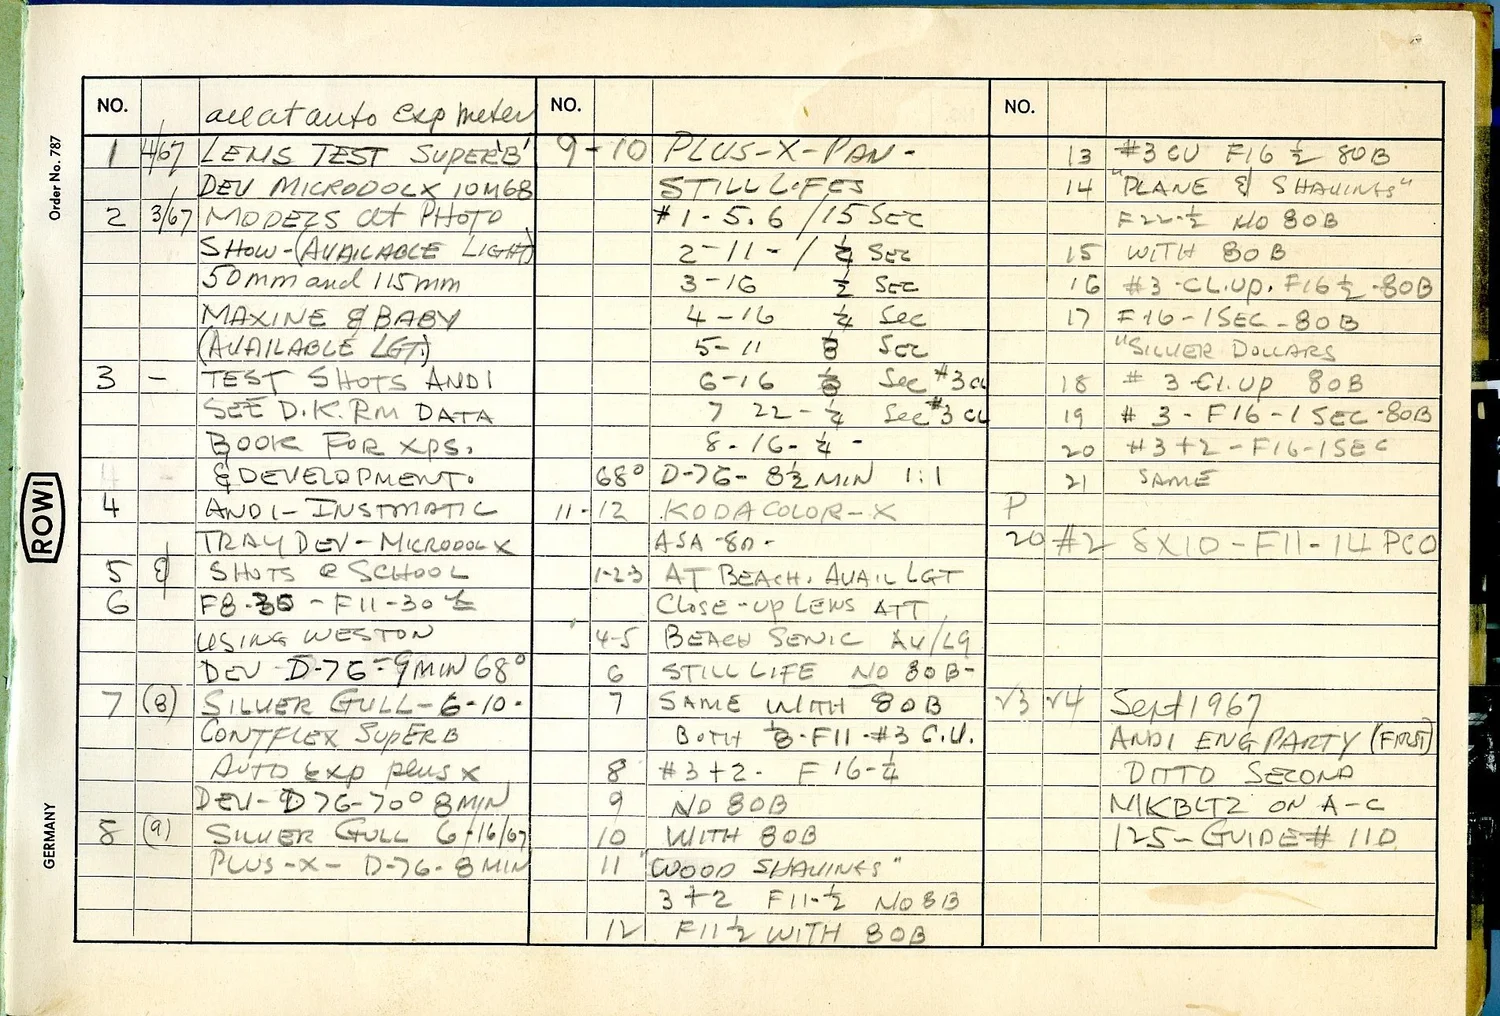 Order No. 787
ROWI
GERMANY
NO. all at auto exp meter
1 4/67 LENS TEST SUPER 'B'
DEV MICRODOLX 10M68
2 3/67 MODELS at PHOTO
SHOW-(AVAILABLE LIGHT)
50mm and 115mm
MAXINE & BABY
(AVAILABLE LGT.)
3 - TEST SHOTS ANDI
SEE D.K.RM DATA
BOOK FOR XPS.
& DEVELOPMENT.
4 ANDI- INSTMATIC
TRAY DEV- MICRODOLX
5 & SHOTS @ SCHOOL
6 F8-30 - F11-30
USING WESTON
DEV D-76- 9MIN 68°
7 (8) SILVER GULL-6-10-
CONTFLEX SUPERB
AUTO Exp plus x
DEV- D76-70° 8MIN
8 (9) SILVER GULL 6/16/67
PLUS-X- D-76- 8MIN
NO.
9-10 PLUS-X-PAN-
STILL LIFES
#1-5.6 /15 SEC
2-11- / 1/2 SEC
3-16 1/2 SEC
4-16 1/4 Sec
5-11 1/8 SEC
6-16 1/8 Sec #3 CU
7 22-1/4 Sec #3 CU
8-16-1/4 -
68° D-76- 8 1/2 MIN 1:1
11-12 KODACOLOR-X
ASA-80-
1-2-3 AT BEACH. AVAIL LGT
CLOSE-UP LENS ATT
4-5 BEACH SENIC AV/LG
6 STILL LIFE NO 80B-
7 SAME WITH 80B
BOTH 1/8-F11-#3 C.U.
8 #3+2- F16-1/4
9 NO 80B
10 WITH 80B
11 "WOOD SHAVINGS"
3+2 F11-1/2 NO 8B
12 F11 1/2 WITH 80B
NO.
13 #3 CU F16 1/2 80B
14 "PLANE & SHAVINGS"
F22-1/2 NO 80B
15 WITH 80B
16 #3-CL.UP. F16 1/2-80B
17 F16-1SEC-80B
"SILVER DOLLARS
18 # 3-CL.UP 80B
19 # 3-F16-1SEC-80B
20 #3+2-F16-1SEC
21 SAME
P
20 #2 8X10-F11-14 PCO
V3 V4 Sept 1967
ANDI ENG PARTY (FIRST)
DITTO SECOND
MKBLTZ ON A-C
125-GUIDE# 110